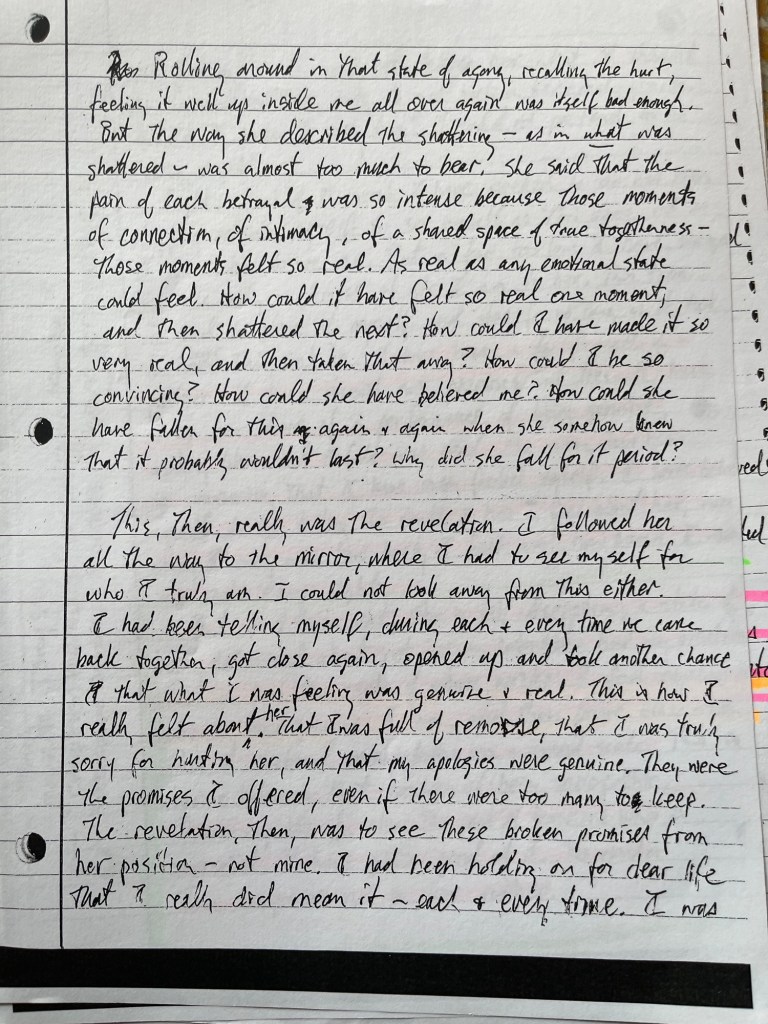 Rolling around in that state of agony, recalling the hurt,
feeling it well up inside me all over again was itself bad enough.
But the way she described the shattering – as in what was
shattered – was almost too much to bear. She said that the
pain of each betrayal was so intense because those moments
of connection, of intimacy, of a shared space of true togetherness –
those moments felt so real. As real as any emotional state
could feel. How could it have felt so real one moment,
and then shattered the next? How could I have made it so
very real, and then taken that away? How could I be so
convincing? How could she have believed me? How could she
have fallen for this again & again when she somehow knew
that it probably wouldn't last? Why did she fall for it period?
This, then, really was the revelation. I followed her
all the way to the mirror, where I had to see myself for
who I truly am. I could not look away from this either.
I had been telling myself, during each & every time we came
back together, got close again, opened up and took another chance
that what I was feeling was genuine & real. This is how I
really felt about her. That I was full of remorse, that I was truly
sorry for hurting her, and that my apologies were genuine. They were
the promises I offered, even if there were too many to keep.
The revelation, then, was to see these broken promises from
her position – not mine. I had been holding on for dear life
that I really did mean it – each & every time. I was